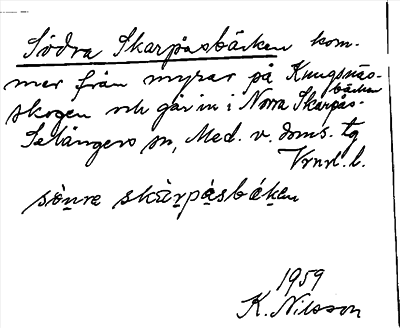 Södra Skarpåsbäcken kom-
mer från myrar på Kungsnäs-
skogen och går in i Norra Skarpås-
bäcken
Selångers sn, Med. v. doms. tg
Vrnrl. l.
sönre skarpåsbäken
1959
K. Nilsson